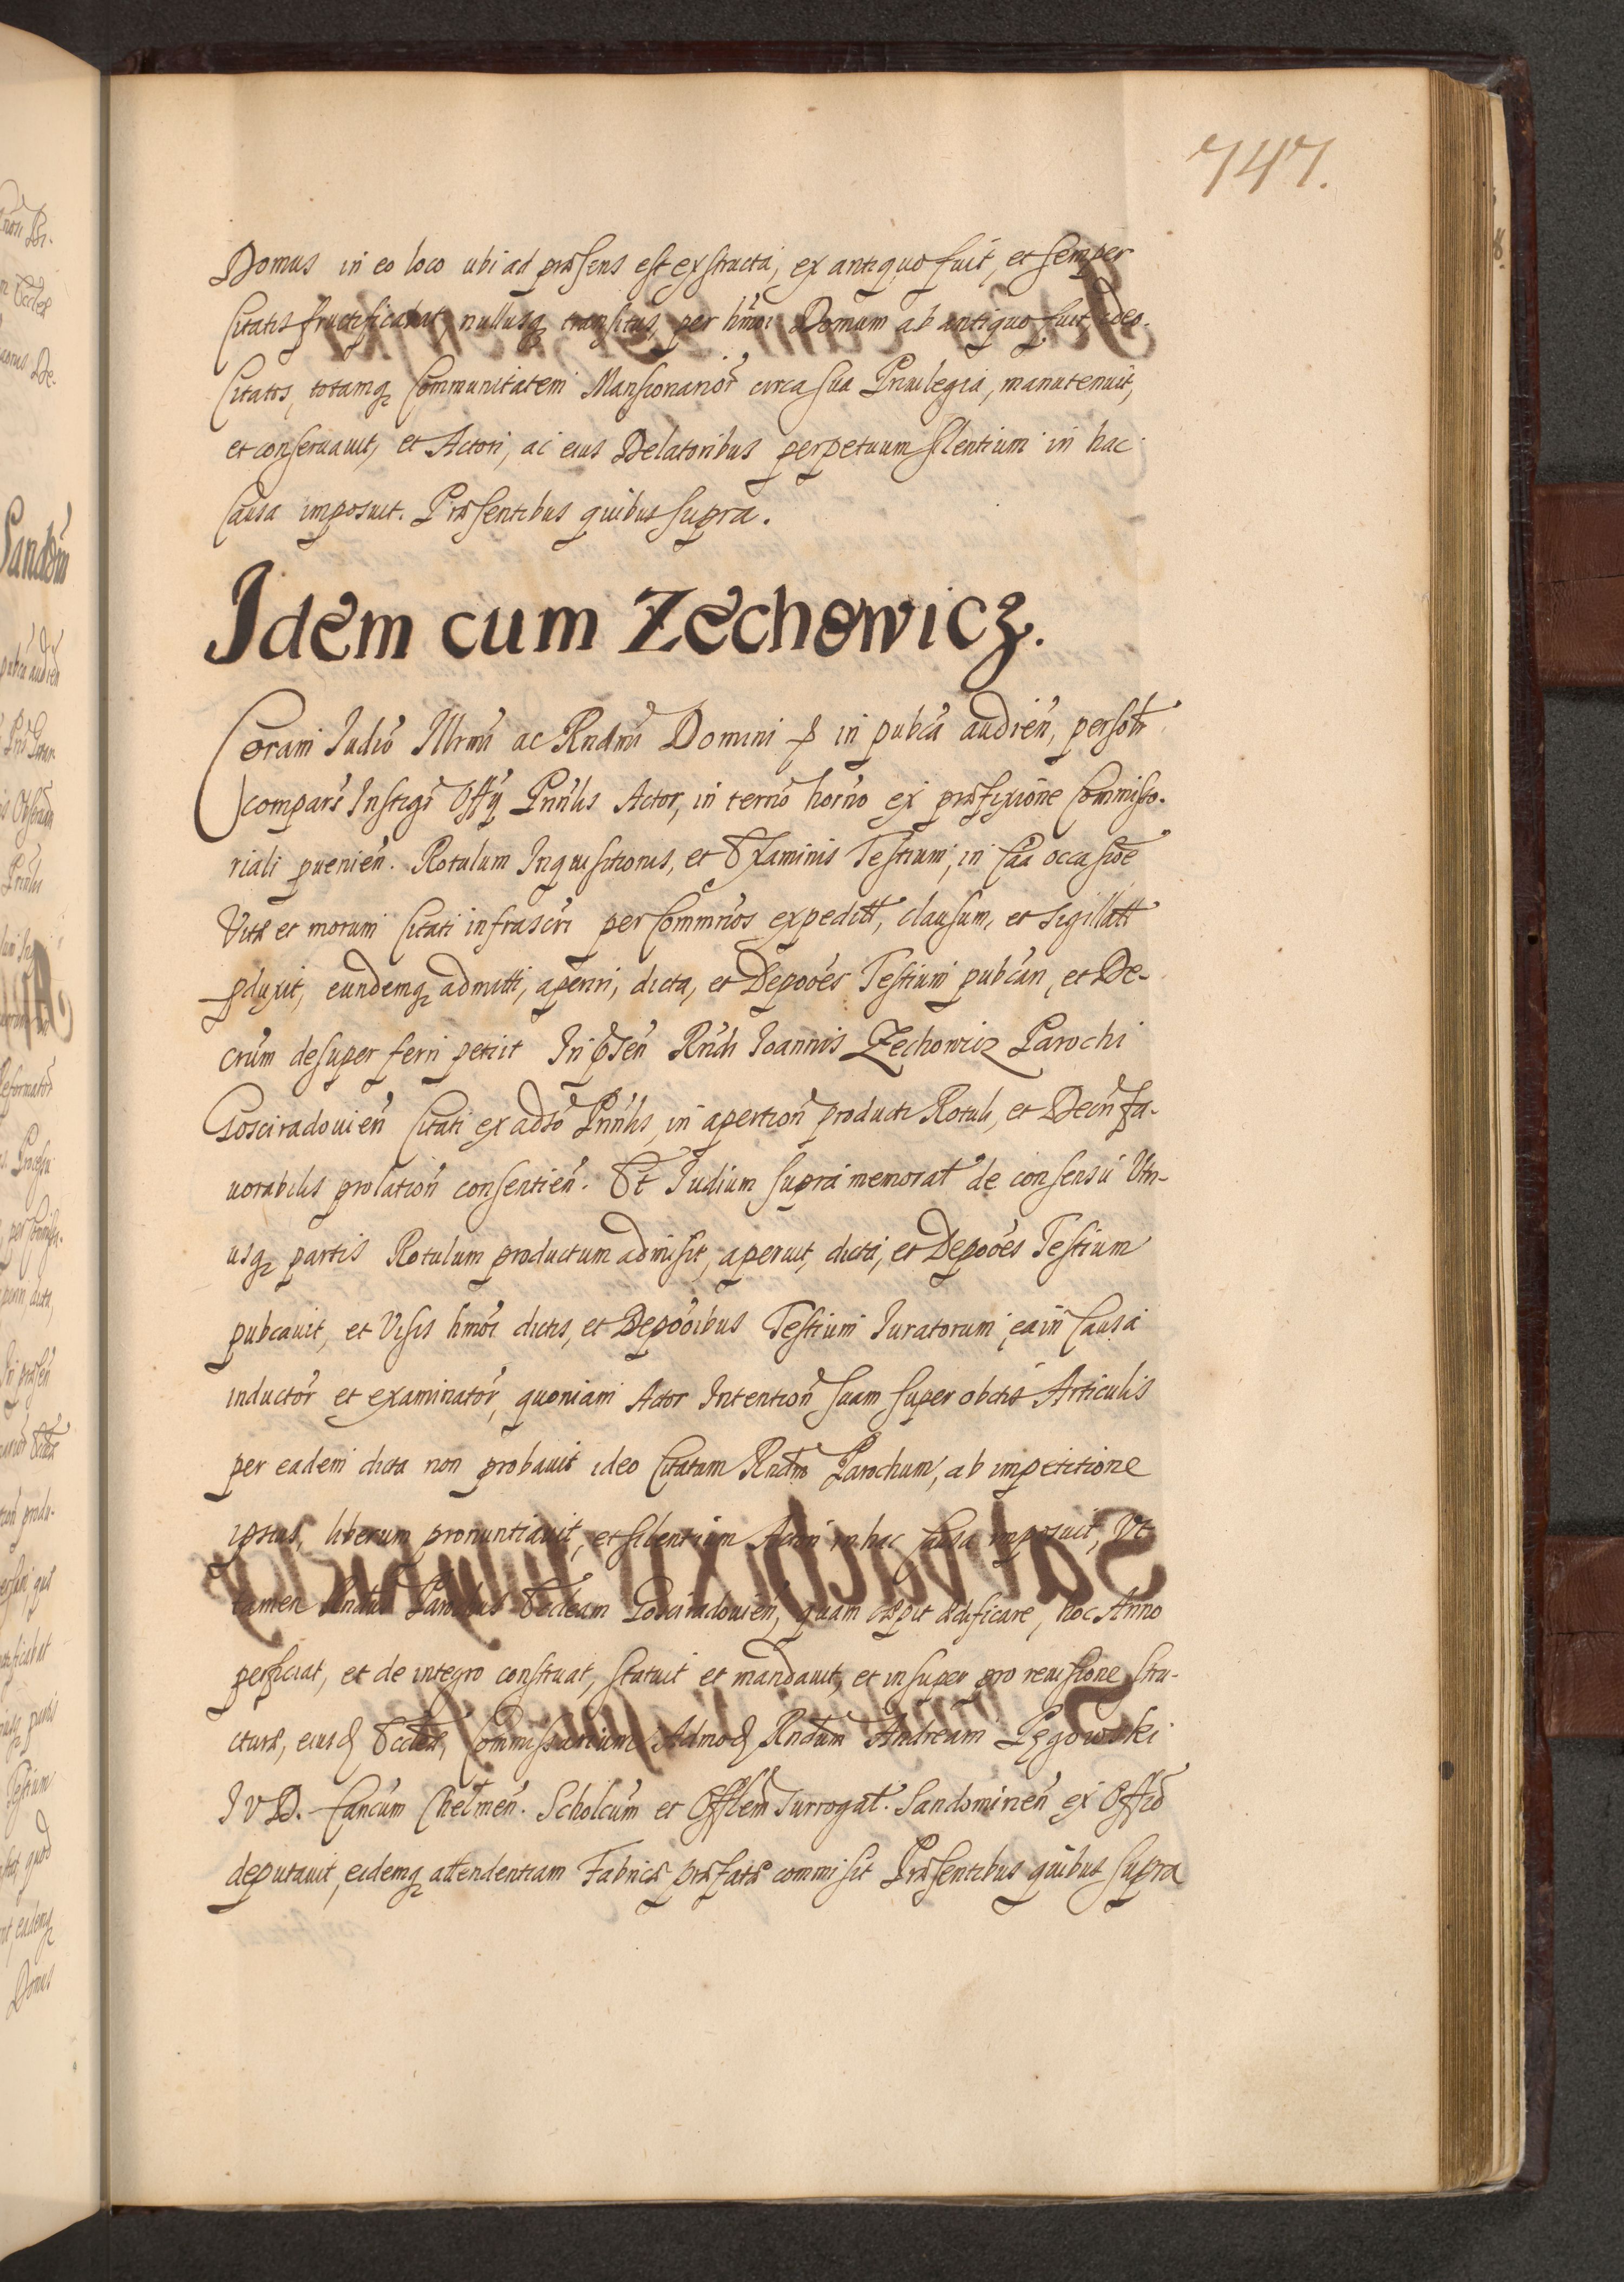 747.
Domus in eo loco ubi ad præsens est exstructa, ex antiquo fuit, et semper
Citatis fructificabat nullusq transitus, per hmoi Domum ab antiquo fuit, ideo
Citatos, totamq Communitatem Mansionarior circa sua Priuilegia, manutenuit,
et conseruauit, et Actori, ac eius Delatoribus perpetuum silentium in hac
Causa imposuit. Præsentibus quibus supra.
Idem cum Zechowicz.
Coram Iudio Illrmi ac Rndmi Domini & in pubca audien, persolr
compars Instigr Offij Pnnlis Actor, in termo horno ex præfixione Commisso-
riali puenien. Rotulum Inquisitionis, et Examinis Testium, in Caa occasioe
Vitæ et morum Citati infrascri per Commrios expeditt, clausum, et sigillatt
pduxit, eundemq admitti, aperiri, dicta, et Depoões Testium pubcan, et De-
crum desuper ferri petiit In psen Rndi Ioannis Zechowicz Parochi
Gosciradouien Citati ex adso Pnnlis, in apertion producti Rotuli, et Decri fa-
uorabilis prolation consentien. Et Iudium supra memorat de consensu Utri-
usq partis Rotulum productum admisit, aperuit, dicta, et Depoões Testium
pubcauit, et Visis hmoi dictis, et Depooibus Testium Iuratorum, ea in Causa
inductor et examinator, quoniam Actor Intention suam super obctis Articulis
per eadem dicta non probauit ideo Citatum Rndm Parochum, ab impetitione
ipsius, liberum pronuntiauit, et silentium Actori in hac Causa imposuit, Ut
tamen Rndus Parochus Eccleam Gosciradouien, quam cæpit ædificare, hoc Anno
perficiat, et de integro construat, statuit et mandauit, et insuper pro reuisione stru-
cturæ, eiusd Eccleæ, Commissarium Admod Rndum Andream Lęgowski
I V D. Cancum Chelmen. Scholcum et Offlem Surrogat. Sandomirien ex Offio
deputauit, eidemq attendentiam Fabricæ præfatæ commisit Præsentibus quibus supra